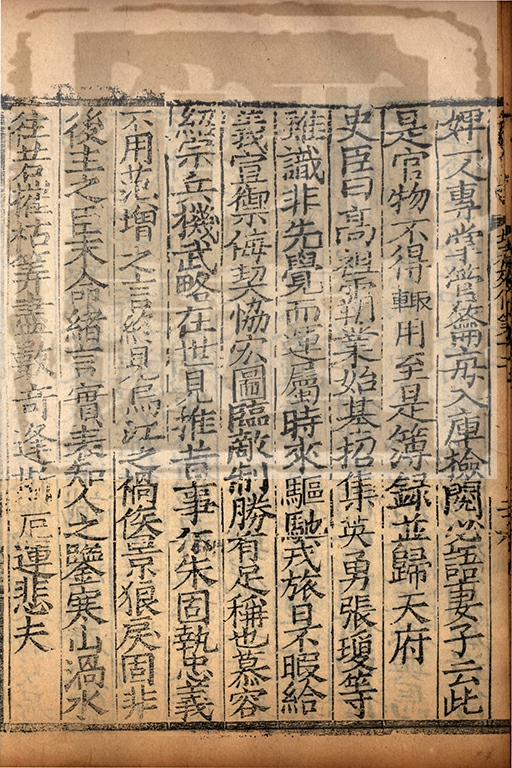 婢一人專掌管籥每入庫檢閱必語妻子云此
是官物不得輙用至是簿録並歸天府
史臣曰髙祖霸業始基招集英勇張瓊等
雖識非先覺而運屬時來驅馳戎旅日不暇給
義宣禦侮契協宏圖臨敵制勝有足稱也慕容
紹宗兵機武略在世見推昔事尒朱固執忠義
不用范增之言終見烏江之禍侯景狼戾固非
後主之臣末命緒言實表知人之鑒寒山渦水
往若摧枯筭盡數奇逢斯厄運悲夫